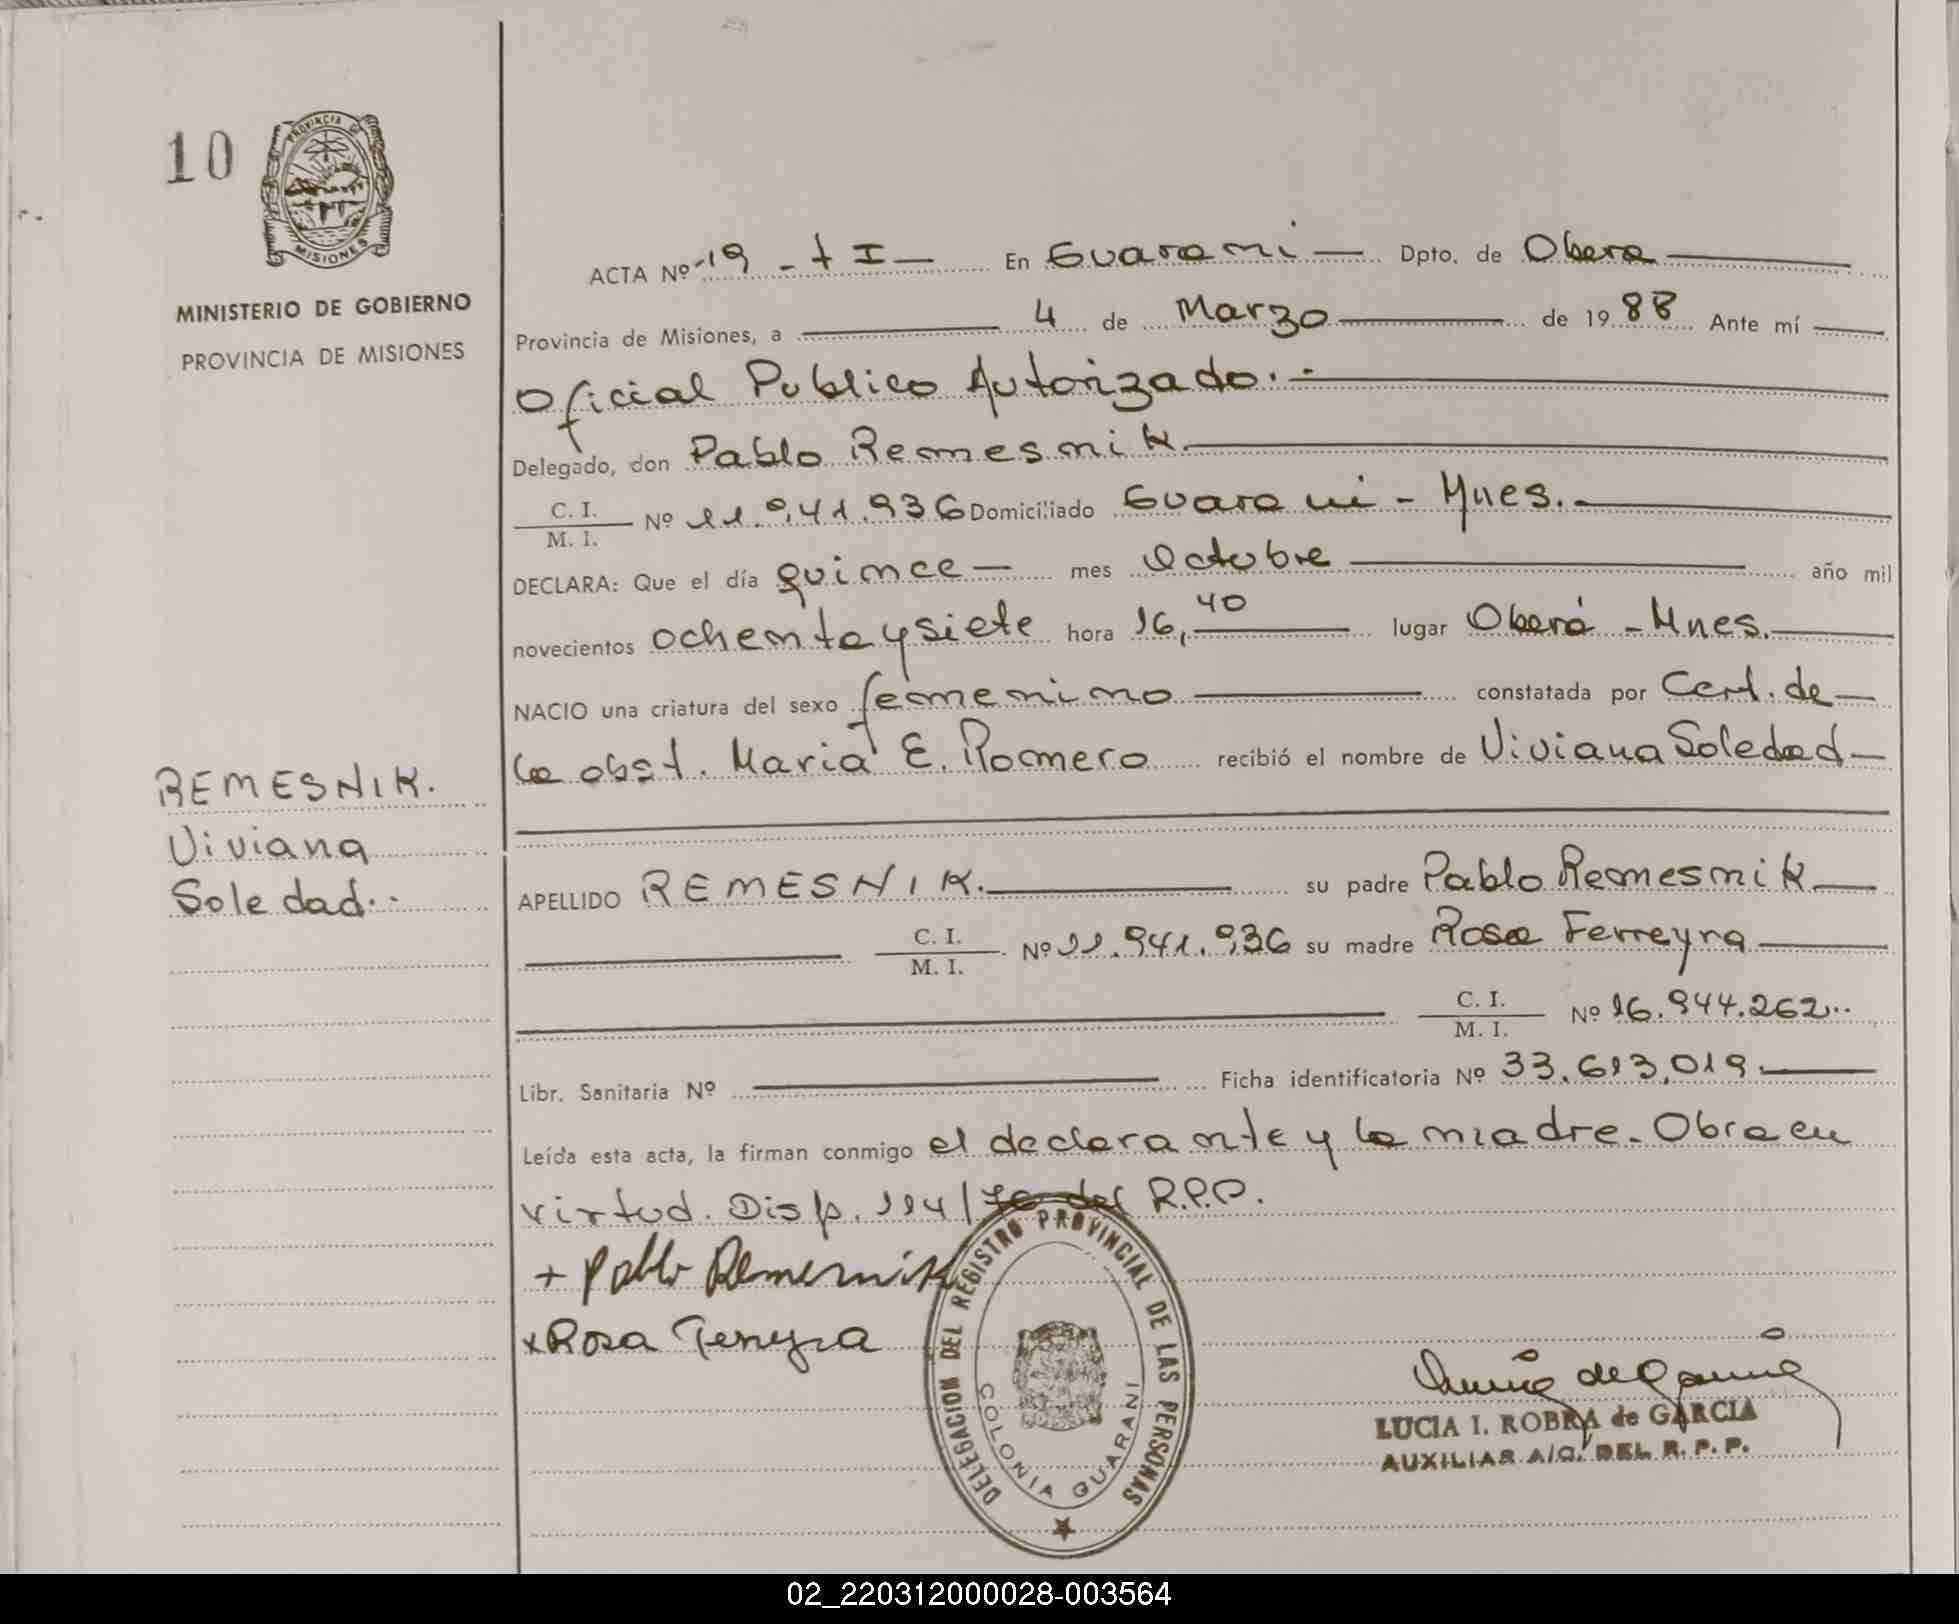 10
PROVINCIA DE
MISIONES
MINISTERIO DE GOBIERNO
PROVINCIA DE MISIONES
ACTA Nº 19 - t I - En Guarani - Dpto. de Obera
Provincia de Misiones, a 4 de Marzo de 1988 Ante mí
Oficial Publico Autorizado. -
Delegado, don Pablo Remesnik
C. I.
M. I. Nº 11.941.936 Domiciliado Guarani - Mnes. -
DECLARA: Que el día quince - mes Octubre año mil
novecientos ochenta y siete hora 16,40 lugar Oberá - Mnes.
NACIO una criatura del sexo femenino constatada por Cert. de
la obst. Maria E. Romero recibió el nombre de Viviana Soledad
REMESNIK.
Viviana
Soledad..
APELLIDO REMESNIK. su padre Pablo Remesnik
C. I.
M. I. Nº 11.941.936 su madre Rosa Ferreyra
C. I.
M. I. Nº 16.944.262..
Libr. Sanitaria Nº Ficha identificatoria Nº 33.613.019
Leída esta acta, la firman conmigo el declarante y la madre. Obra en
virtud. Disp. 114/76 del R.P.P.
+ Pablo Remesnik
x Rosa Ferreyra
DELEGACION DEL REGISTRO PROVINCIAL DE LAS PERSONAS
COLONIA GUARANI
LUCIA I. ROBRA de GARCIA
AUXILIAR A/C. DEL R. P. P.
02_220312000028-003564